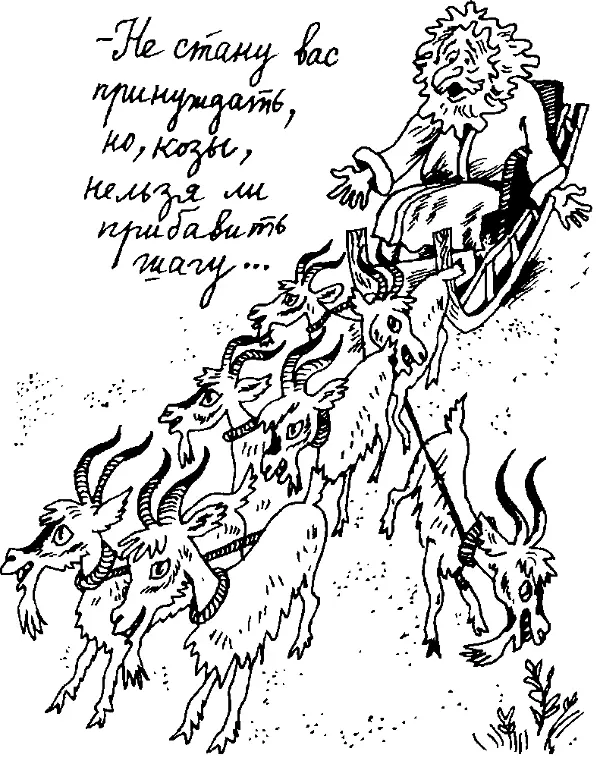 -Не стану вас
принуждать,
но, козы,
нельзя ли
прибавить
шагу...